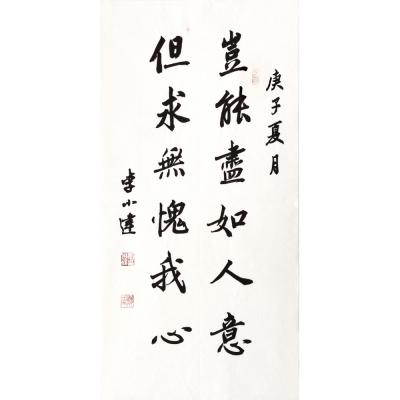 庚子夏月
豈能盡如人意
但求無愧我心
李小建